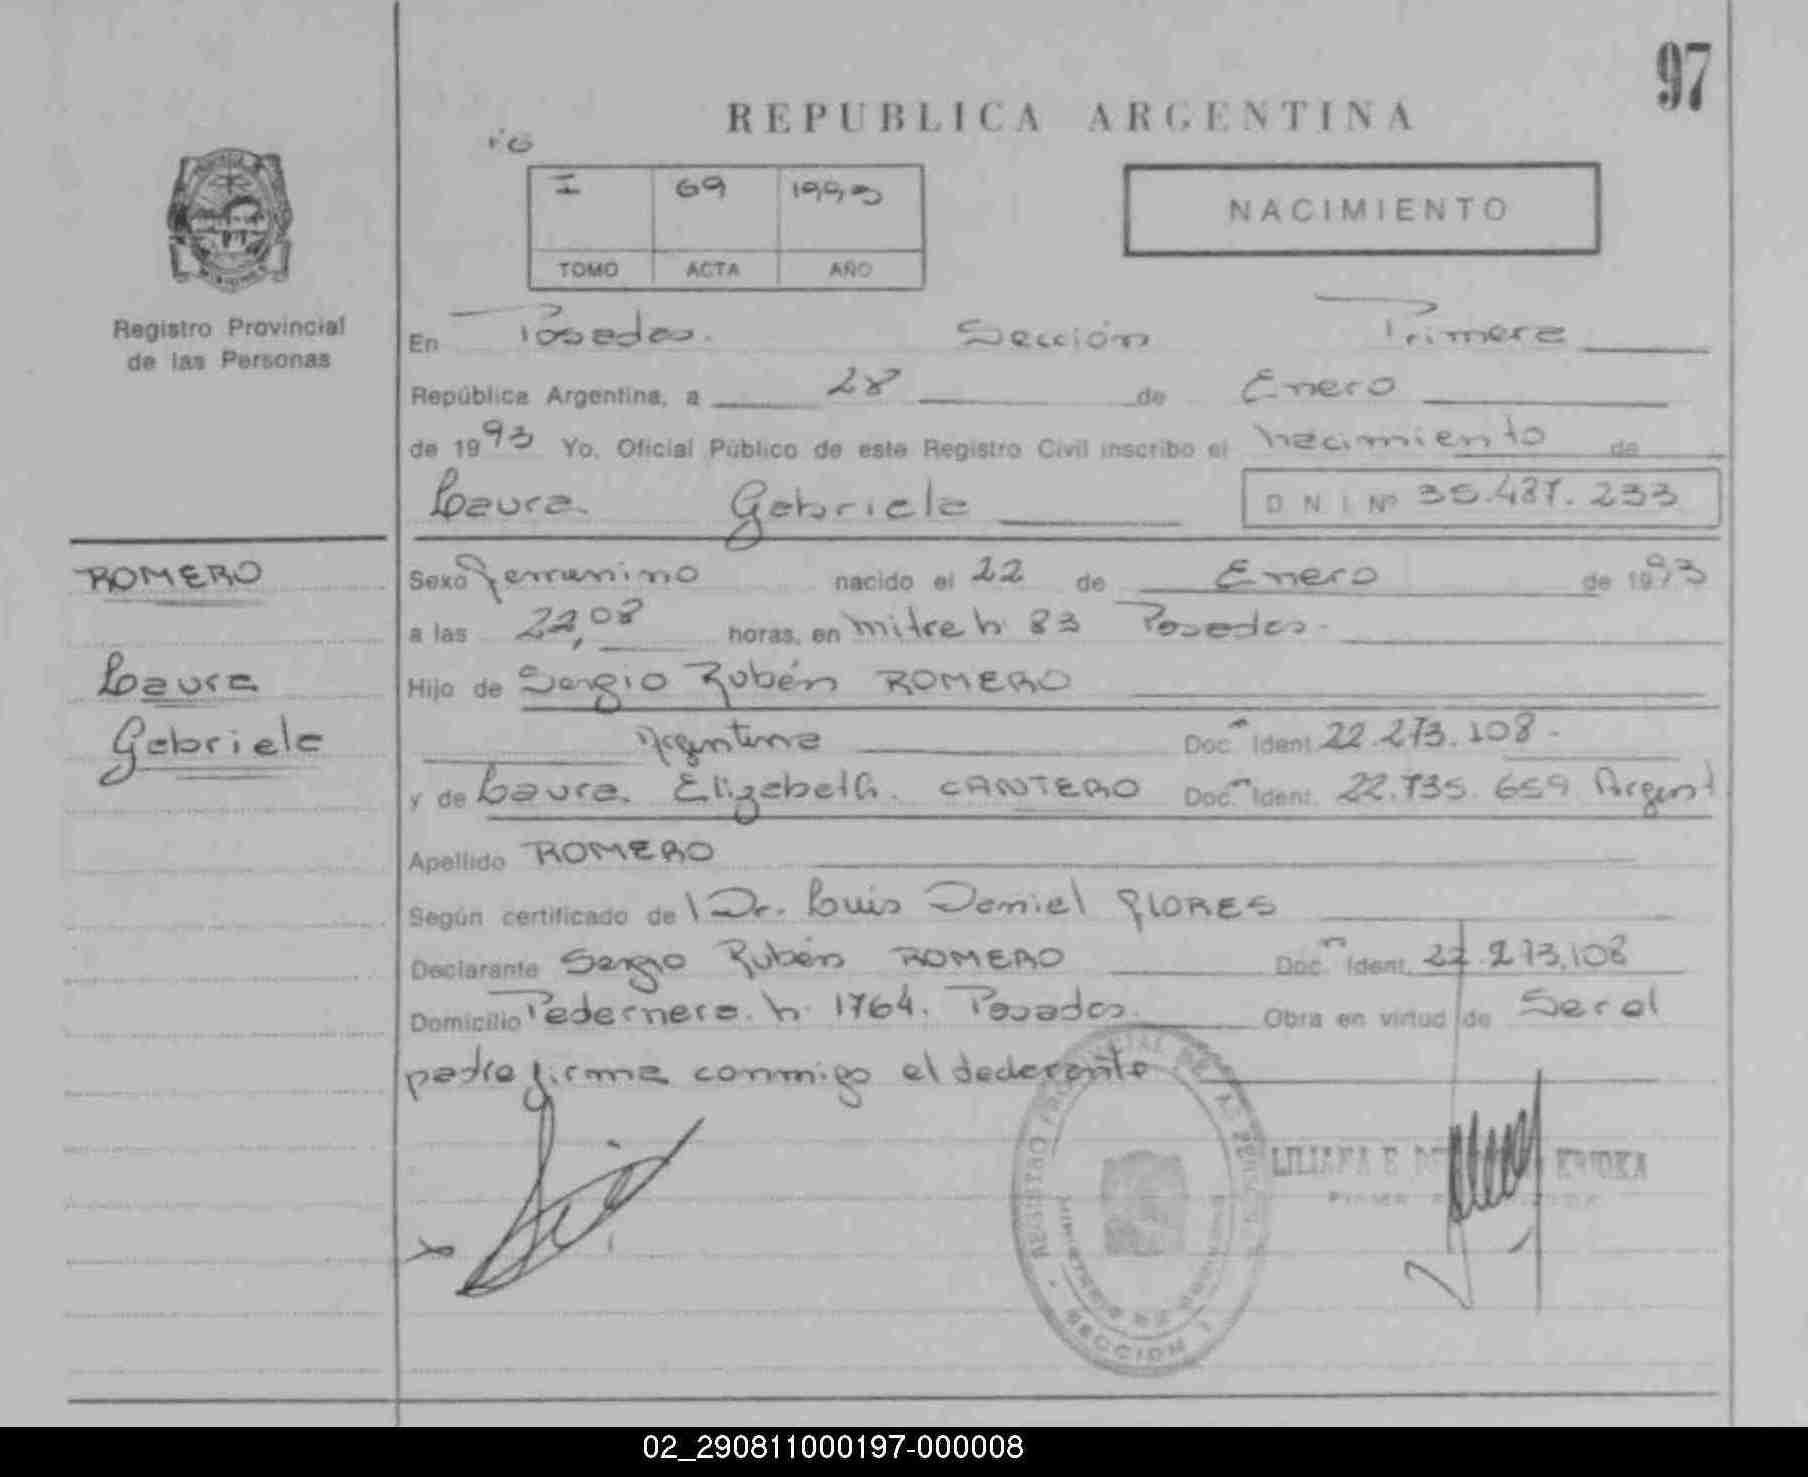 97
REPUBLICA ARGENTINA
I 69 1993
TOMO ACTA AÑO
NACIMIENTO
Registro Provincial
de las Personas
En Posadas. Sección Primera
República Argentina, a 28 de Enero
de 1993 Yo, Oficial Público de este Registro Civil inscribo el nacimiento de
Laura Gabriela D N I Nº 35.487.233
ROMERO
Laura
Gabriela
Sexo femenino nacido el 22 de Enero de 1993
a las 22,08 horas, en mitre n. 83 Posadas.
Hijo de Sergio Rubén ROMERO
Argentina Doc. Ident. 22.273.108.
y de Laura Elizabeth CANTERO Doc. Ident. 22.735.659 Argent
Apellido ROMERO
Según certificado de Dr. Luis Daniel FLORES
Declarante Sergio Rubén ROMERO Doc. Ident. 22.273,108
Domicilio Pedernera n. 1764. Posadas. Obra en virtud de Ser el
padre firma conmigo el declarante
REGISTRO PROVINCIAL DE LAS PERSONAS
SECCION 1
LILIANA E.
02_290811000197-000008